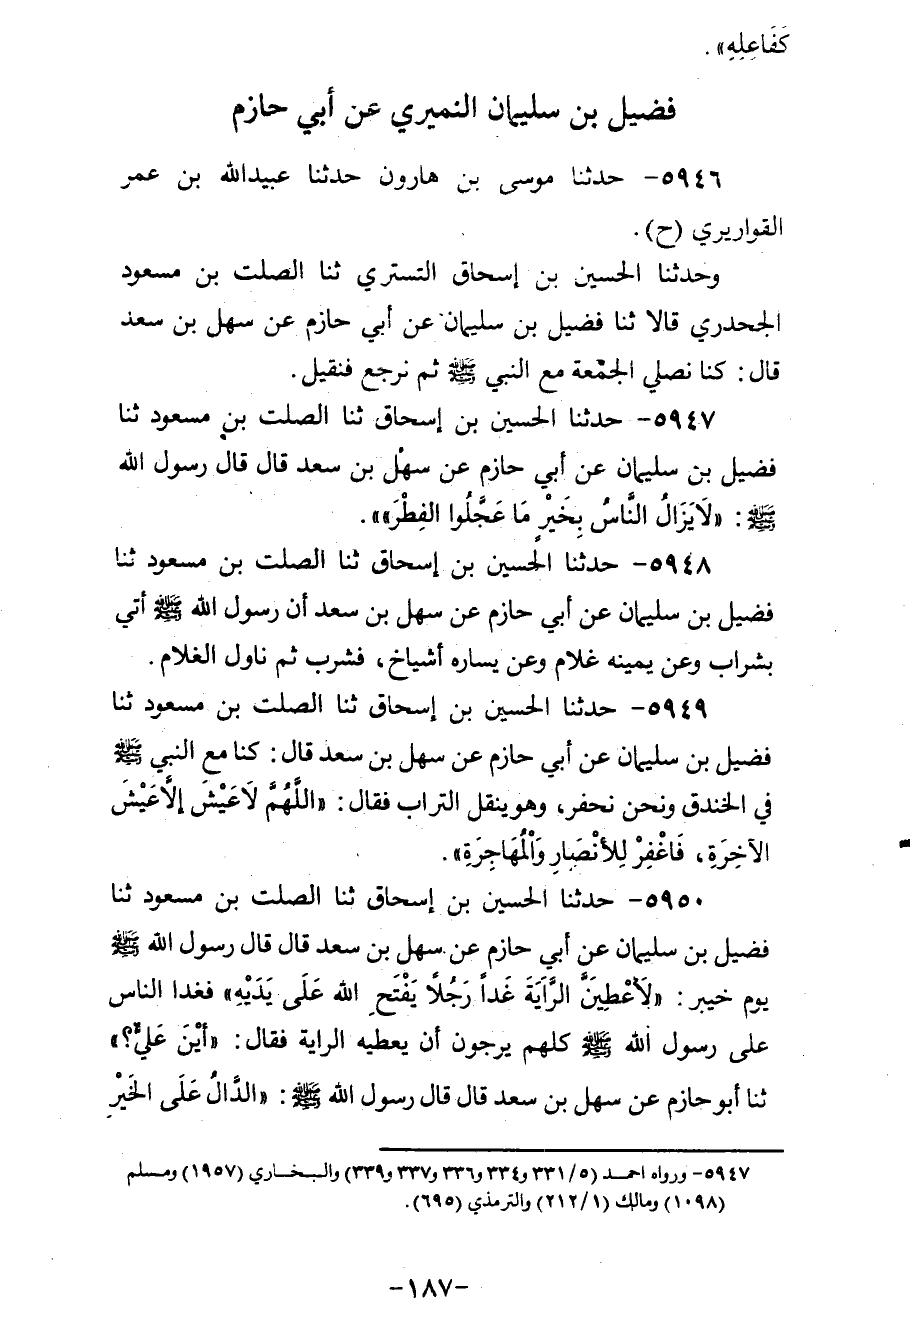 كَفَاعِلِهِ» .
فضيل بن سليمان النميري عن أبي حازم
٥٩٤٦- حدثنا موسى بن هارون حدثنا عبيدالله بن عمر
القواريري (ح) .
وحدثنا الحسين بن إسحاق التستري ثنا الصلت بن مسعود
الجحدري قالا ثنا فضيل بن سليمان عن أبي حازم عن سهل بن سعد
قال : كنا نصلي الجمعة مع النبي ﷺ ثم نرجع فنقيل .
٥٩٤٧- حدثنا الحسين بن إسحاق ثنا الصلت بن مسعود ثنا
فضيل بن سليمان عن أبي حازم عن سهل بن سعد قال قال رسول الله
ﷺ : «لَايَزَالُ النَّاسُ بِخَيْرٍ مَا عَجَّلُوا الفِطْرَ»» .
٥٩٤٨- حدثنا الحسين بن إسحاق ثنا الصلت بن مسعود ثنا
فضيل بن سليمان عن أبي حازم عن سهل بن سعد أن رسول الله ﷺ أتي
بشراب وعن يمينه غلام وعن يساره أشياخ ، فشرب ثم ناول الغلام .
٥٩٤٩- حدثنا الحسين بن إسحاق ثنا الصلت بن مسعود ثنا
فضيل بن سليمان عن أبي حازم عن سهل بن سعد قال : كنا مع النبي ﷺ
في الخندق ونحن نحفر ، وهو ينقل التراب فقال : «اللَّهُمَّ لَاعَيْشَ إلَّاعَيْشَ
الآخِرَةِ ، فَاغْفِرْ لِلأَنْصَارِ وَالْمُهَاجِرَةِ» .
٥٩٥٠- حدثنا الحسين بن إسحاق ثنا الصلت بن مسعود ثنا
فضيل بن سليمان عن أبي حازم عن سهل بن سعد قال قال رسول الله ﷺ
يوم خيبر : «لَأُعْطِيَنَّ الرَّايَةَ غَداً رَجُلاً يَفْتَحِ الله عَلَى يَدَيْهِ» فغدا الناس
على رسول الله ﷺ كلهم يرجون أن يعطيه الراية فقال : «أَيْنَ عَلِيٌّ؟»
ثنا أبو حازم عن سهل بن سعد قال قال رسول الله ﷺ : «الدَّالُ عَلَى الخَيْرِ
٥٩٤٧- ورواه احمد (٥/ ٣٣١ و٣٣٤ و٣٣٦ و٣٣٧ و٣٣٩) والبخاري (١٩٥٧) ومسلم
(١٠٩٨) ومالك (٢١٢/١) والترمذي (٦٩٥) .
-١٨٧-